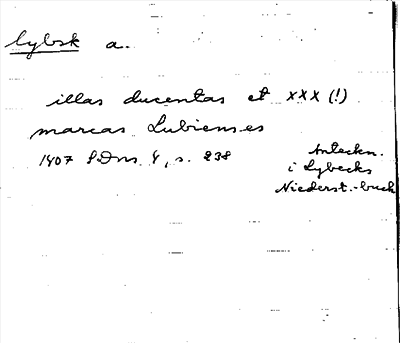 lybsk a.
illas ducentas et xxx (!)
marcas Lubienses
1407 SDns 1, s. 238
Anteckn.
i Lybecks
Niederst.-buch